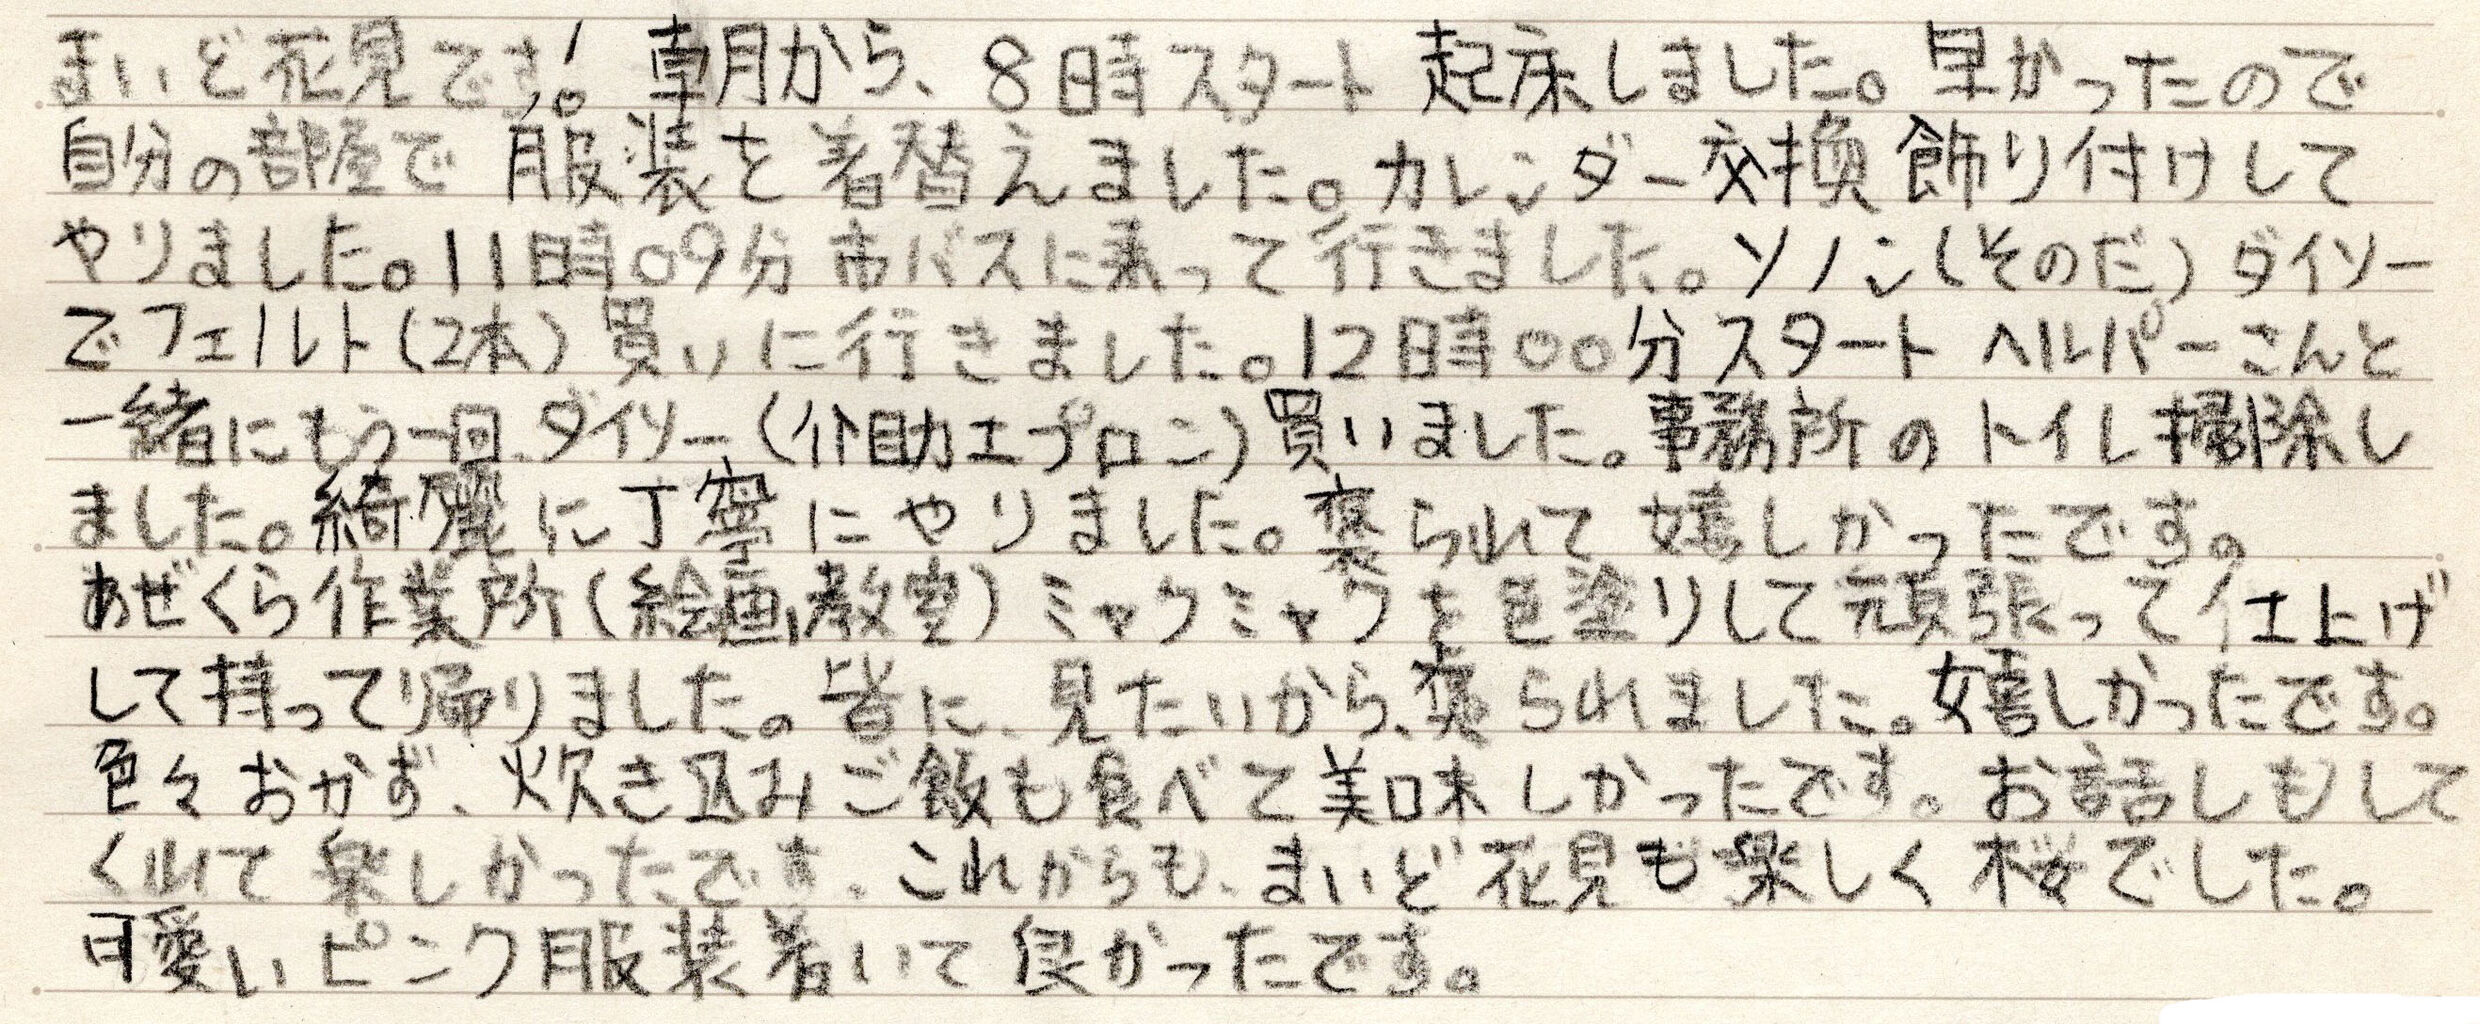 まいど花見です!。朝から、8時スタート 起床しました。早かったので
自分の部屋で 服装を着替えました。カレンダー交換飾り付けして
やりました。11時09分 市バスに乗って行きました。ソノシ(そのだ)ダイソー
でフェルト(2本)買いに行きました。12時00分スタート ヘルパーさんと
一緒にもう一回、ダイソー(介助エプロン)買いました。事務所のトイレ掃除し
ました。綺麗に丁寧にやりました。褒られて 嬉しかったです。
あぜくら作業所(絵画教室)ミャクミャクを色塗りして頑張って仕上げ
して持って帰りました。皆に、見たいから、褒られました。嬉しかったです。
色々おかず、炊き込みご飯も食べて美味しかったです。お話しもして
くれて楽しかったです。これからも、まいど花見も楽しく桜でした。
可愛いピンク服装着いて良かったです。